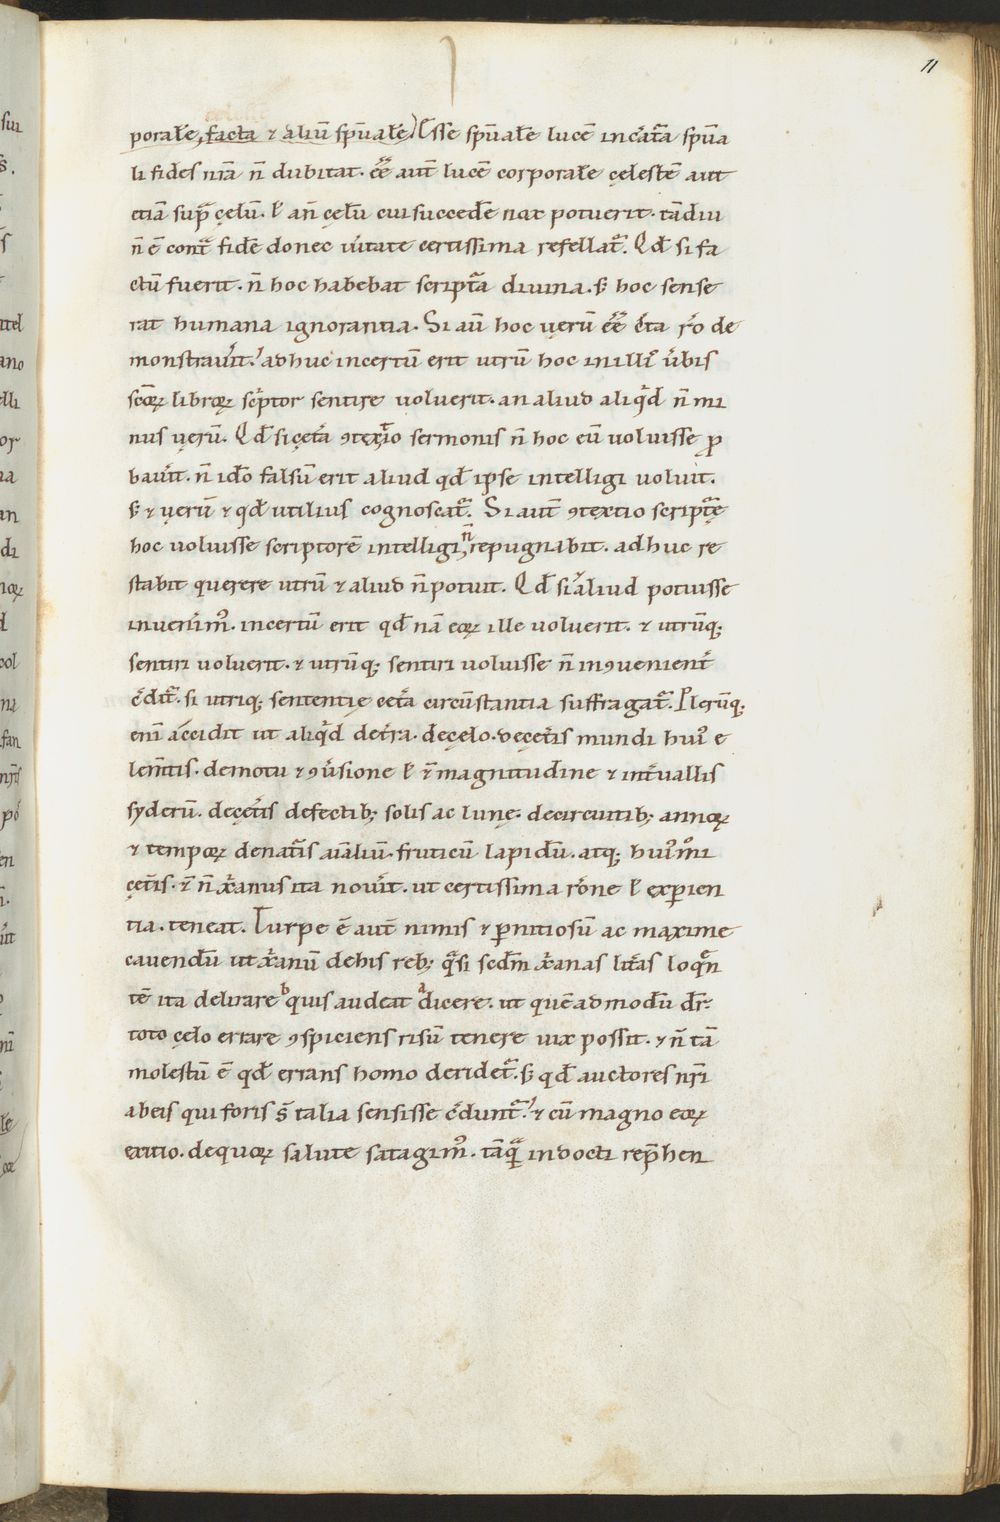 11
poral̄e, facta & aliū spūal̄e) Esse spūal̄e lucē in c̄atʾa spūa
li fides nr̄a n̄ dubitat. ee᷒ aut̄ lucē corporal̄e cęlestē aut
etiā supᵃ cęlū. ł an̄ cęlū cui succedē nox potuerit. tādiu
n̄ ē contᵃ fidē donec ūitate certissima refellatᷣ. Qd̄ si fa
ctū fuerit. n̄ hoc habebat scriptᷓa diuina. s̄ hoc sense
rat humana ignorantia. Si aū hoc uerū ēe c̄ta r̄o de
monstrauit̄. adhuc incertū erit utrū hoc in illiꝰ ūbis
sc̄oꝝ libroꝝ sc̄ptor sentire uoluerit. an aliud aliqͥd n̄ mi
nus uerū. Qd̄ si cęt̄a ꝯtextio sermonis n̄ hoc eū uoluisse ꝓ
bauit̄. n̄ ido̅ falsū erit aliud qd̄ ipse intelligi uoluit.
s̄ & uerū & qd̄ utilius cognoscatᷣ. Si aut̄ ꝯtextio scriptᷓę
hoc uoluisse scriptorē intelligi, n̄ repugnabit. adhuc re
stabit querere utrū & aliud n̄ potuit. Qd̄ si & aliud potuisse
inuenim᷒. incertū erit qd̄ nā eoꝝ ille uoluerit. & utrūq;
sentiri uoluerit. & utrūq; sentiri uoluisse n̄ inꝯuenient̄
c̄ditᷣ. si utriq; sententię cet̄a circūstantia suffragatᷣ. Plerūq;
eni̅ accidit ut aliqͥd det̄ra. de cęlo. de cęt̄is mundi huiꝰ e
lem̄tis. de motu & ꝯūsione ł & magnitudine & int̄uallis
syderū. de cęt̄is defectib; solis ac lunę. de circuitib; annoꝝ
& tempoꝝ de naturis ai̅aliū. fruticū lapidū. atq; huiꝰmōi
cęt̄is. & n̄ xr̄anus ita nouit̄. ut certissima r̄one ł experien
tia. teneat. Turpe ē aut̄ nimis & p̄nitiosū ac maxime
cauendū ut xr̄anū de his reb; qͣsi scdm̄ xr̄anas lit̄as loqͣn
tē ita delirare ᵇquis audeat ᵃdicere. ut quē admodū dr̄.
toto cęlo errare ꝯspiciens risū tenere uix possit. & n̄ tā
molestū ē qd̄ errans homo deridetᷣ. s̄ qd̄ auctores nr̄i
ab eis qui foris s̄ talia sensisse c̄duntᷣ. & cū magno eoꝝ
exitio. de quoꝝ salute satagim᷒. tāqͣ indocti rep̄hen